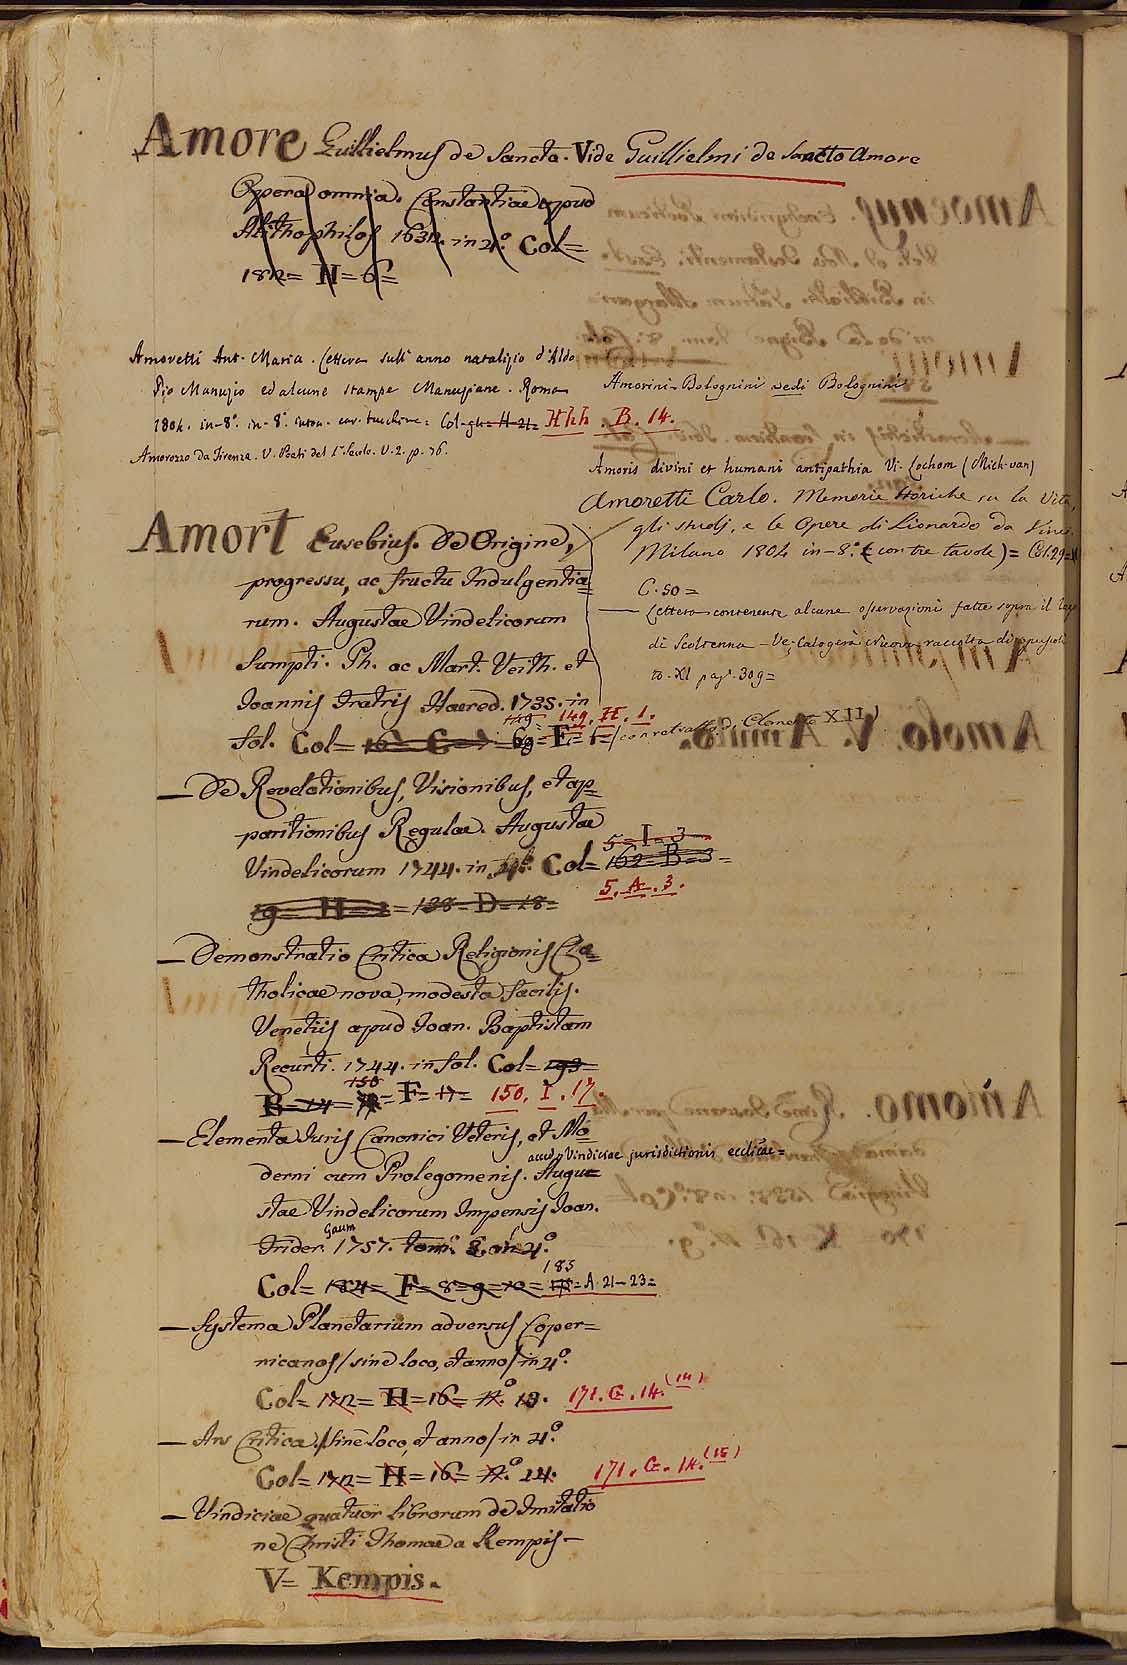 Amore Guillielmus de Sancta. Vide Guillielmi de Sancto Amore
Opera omnia. Constantiae apud
Alithophilos 1632. in 4.º Col=
182= H= 6=
Amoretti Ant. Maria. Lettera sull' anno natalizio d'Aldo
Pio Manuzio ed alcune stampe Manuziane. Roma
1804. in-8.º in-8.º Col- H-21= Hhh. B. 14.
Amorozzo da Firenze. V. Poeti del 1.º Secolo. V. 2. p. 76.
Amorini-Bolognini vedi Bolognini
Amoris divini et humani antipathia Vi. Lochom (Mich. van)
Amoretti Carlo. Memorie storiche su la Vita,
gli studj, e le Opere di Lionardo da Vinci
Milano 1804 in-8.º (con tre tavole) = Col. 29=
C. 50=
— Lettera contenente alcune osservazioni fatte sopra il
di Scoltenna - Ve. Calogerà Nuova raccolta di opuscoli
to. XI pag. 309=
Amort Eusebius. De Origine,
progressu, ac fructu Indulgentia=
rum. Augustae Vindelicorum
Sumpti. Ph. ac Mart. Veith. et
Joannis Fratris Haered. 1735. in
fol. Col= 162= C= 7= 69= F= 1= 149 149. H. 1. (con retratto di Clemente XII)
— De Revelationibus, Visionibus, et ap=
paritionibus Regulae. Augustae
Vindelicorum 1744. in 4.º Col= 162= B= 3=
5= I= 3
5. A. 3.
19= H= 3= 138= D= 18=
— Demonstratio Critica Religionis Ca=
tholicae nova, modesta, facilis.
Venetiis apud Joan. Baptistam
Recurti. 1744. in fol. Col= 193=
B= 14= 150 = F= 17= 150. I. 17.
— Elementa Juris Canonici Veteris, et Mo=
derni cum Prolegomenis. Augu=
acced. Vindiciae jurisdictionis ecclicae=
stae Vindelicorum Impensis Joan.
Frider. Gaum 1757. tom. 2. in 4.º
Col= 184= F= 8= 9= 10= 185 = A. 21-23=
— Systema Planetarium adversus Coper=
nicanos / sine loco, et anno / in 4.º
Col= 172= H= 16= 12.º 13. 171. G. 14. (14)
— Ars Critica. / sine loco, et anno / in 4.º
Col= 172= H= 16= 12.º 14. 171. G. 14. (15)
— Vindiciae quatuor librorum de Imitatio
ne Christi Thomae a Kempis—
V= Kempis.